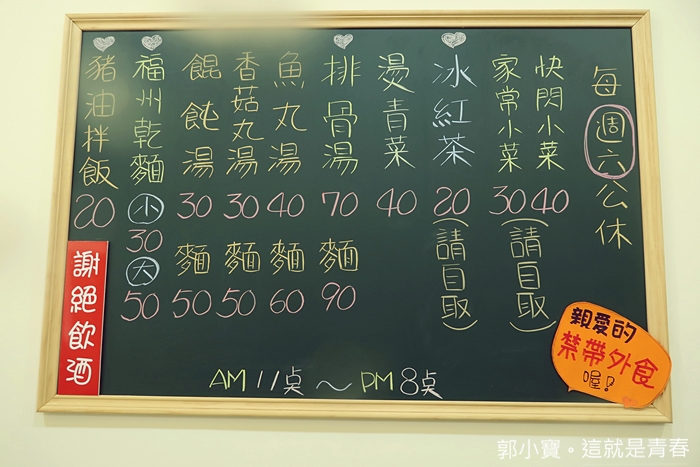 每週六公休
快閃小菜 40
家常小菜 30
(請自取)
冰紅茶 20
(請自取)
燙青菜 40
排骨湯 70
麵 90
魚丸湯 40
麵 60
香菇丸湯 30
麵 50
餛飩湯 30
麵 50
福州乾麵
小 30
大 50
豬油拌飯 20
謝絕飲酒
AM 11点～PM 8点
親愛的
禁帶外食
喔!
郭小寶。這就是青春